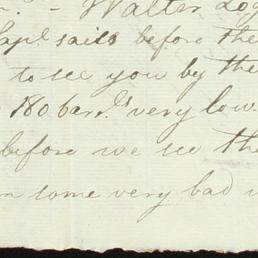 - Walter Log
Capt sails before the
to see you by the
180 barrls very low
before we see the
some very bad